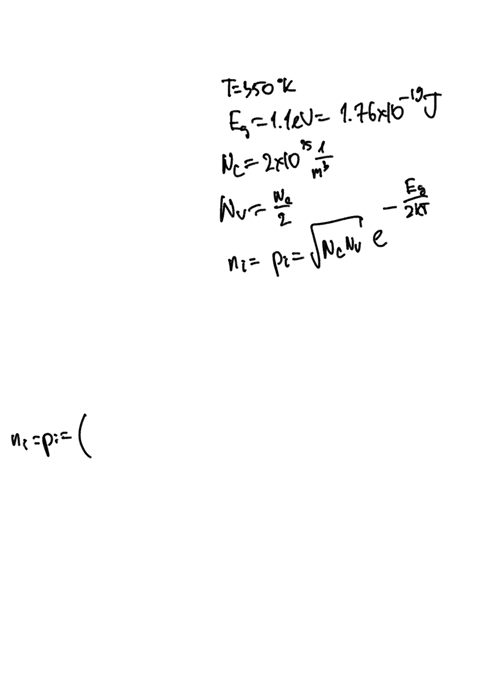 T=350°K
E_g=1.1eV=1.76×10^-19 J
N_c=2×10^25 1/m^3
N_v=N_c/2
n_i=p_i=√(N_c N_v) e^(-E_g/2kT)
n_i=p_i=(